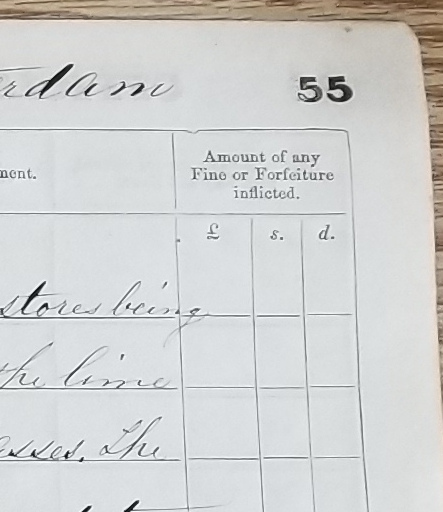 rdam 55
ment.
Amount of any
Fine or Forfeiture
inflicted.
£ s. d.
stores being
the lime
esses. The